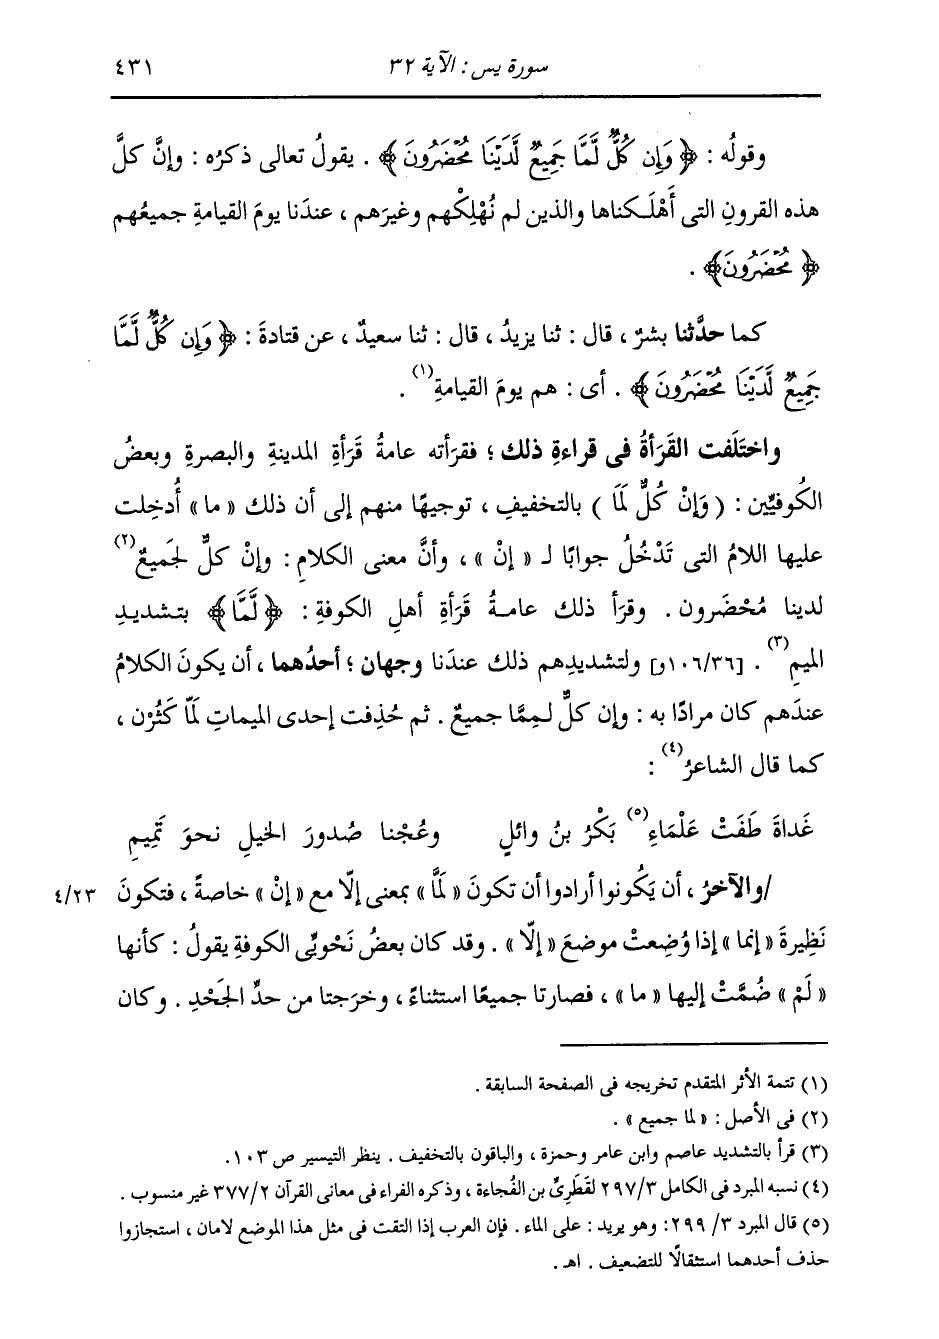 سورة يس : الآية ٣٢ ٤٣١
وقولُه : ﴿ وَإِن كُلٌّ لَّمَّا جَمِيعٌ لَّدَيْنَا مُحْضَرُونَ ﴾ . يقولُ تعالى ذكرُه : وإنَّ كلَّ
هذه القرونِ التى أَهْلَكناها والذين لم نُهْلِكْهم وغيرَهم ، عندَنا يومَ القيامةِ جميعُهم
﴿ مُحْضَرُونَ ﴾ .
كما حدَّثنا بشرٌ ، قال : ثنا يزيدُ ، قال : ثنا سعيدٌ ، عن قتادةَ : ﴿ وَإِن كُلٌّ لَّمَّا
جَمِيعٌ لَّدَيْنَا مُحْضَرُونَ ﴾ . أى : هم يومَ القيامةِ(١) .
واختَلَفت القَرَأةُ فى قراءةِ ذلك ؛ فقرَأته عامةُ قَرَأةِ المدينةِ والبصرةِ وبعضُ
الكُوفيِّين : ( وَإِنْ كُلٌّ لَمَا ) بالتخفيفِ ، توجيهًا منهم إلى أن ذلك « ما » أُدخِلت
عليها اللامُ التى تَدْخُلُ جوابًا لـ « إنْ » ، وأنَّ معنى الكلامِ : وإنْ كلٌّ لجَميعٌ(٢)
لدينا مُحْضَرون . وقرَأ ذلك عامةُ قَرَأةِ أهلِ الكوفةِ : ﴿ لَّمَّا ﴾ بتشديدِ
الميمِ(٣) . [١٠٦/٣٦و] ولتشديدِهم ذلك عندَنا وجهان ؛ أحدُهما ، أن يكونَ الكلامُ
عندَهم كان مرادًا به : وإن كلٌّ لـمِمَّا جميعٌ . ثم حُذِفت إحدى الميماتِ لمَّا كَثُرْن ،
كما قال الشاعرُ(٤) :
غَداةَ طَفَتْ عَلْمَاءِ(٥) بَكْرُ بنُ وائلٍ وعُجْنا صُدورَ الخيلِ نحوَ تَمِيمِ
/والآخرُ ، أن يَكُونوا أرادوا أن تكونَ « لمَّا » بمعنى إلّا مع « إنْ » خاصةً ، فتكونَ ٤/٢٣
نَظِيرةَ « إنما » إذا وُضِعتْ موضعَ « إلّا » . وقد كان بعضُ نَحْويِّى الكوفةِ يقولُ : كأنها
« لَمْ » ضُمَّتْ إليها « ما » ، فصارتا جميعًا استثناءً ، وخرَجتا من حدِّ الجَحْدِ . وكان
(١) تتمة الأثر المتقدم تخريجه فى الصفحة السابقة .
(٢) فى الأصل : « لما جميع » .
(٣) قرأ بالتشديد عاصم وابن عامر وحمزة ، والباقون بالتخفيف . ينظر التيسير ص ١٠٣.
(٤) نسبه المبرد فى الكامل ٢٩٧/٣ لقَطَرِىِّ بن الفُجاءة ، وذكره الفراء فى معانى القرآن ٣٧٧/٢ غير منسوب .
(٥) قال المبرد ٣/ ٢٩٩: وهو يريد : على الماء . فإن العرب إذا التقت فى مثل هذا الموضع لامان ، استجازوا
حذف أحدهما استثقالًا للتضعيف . اهـ .